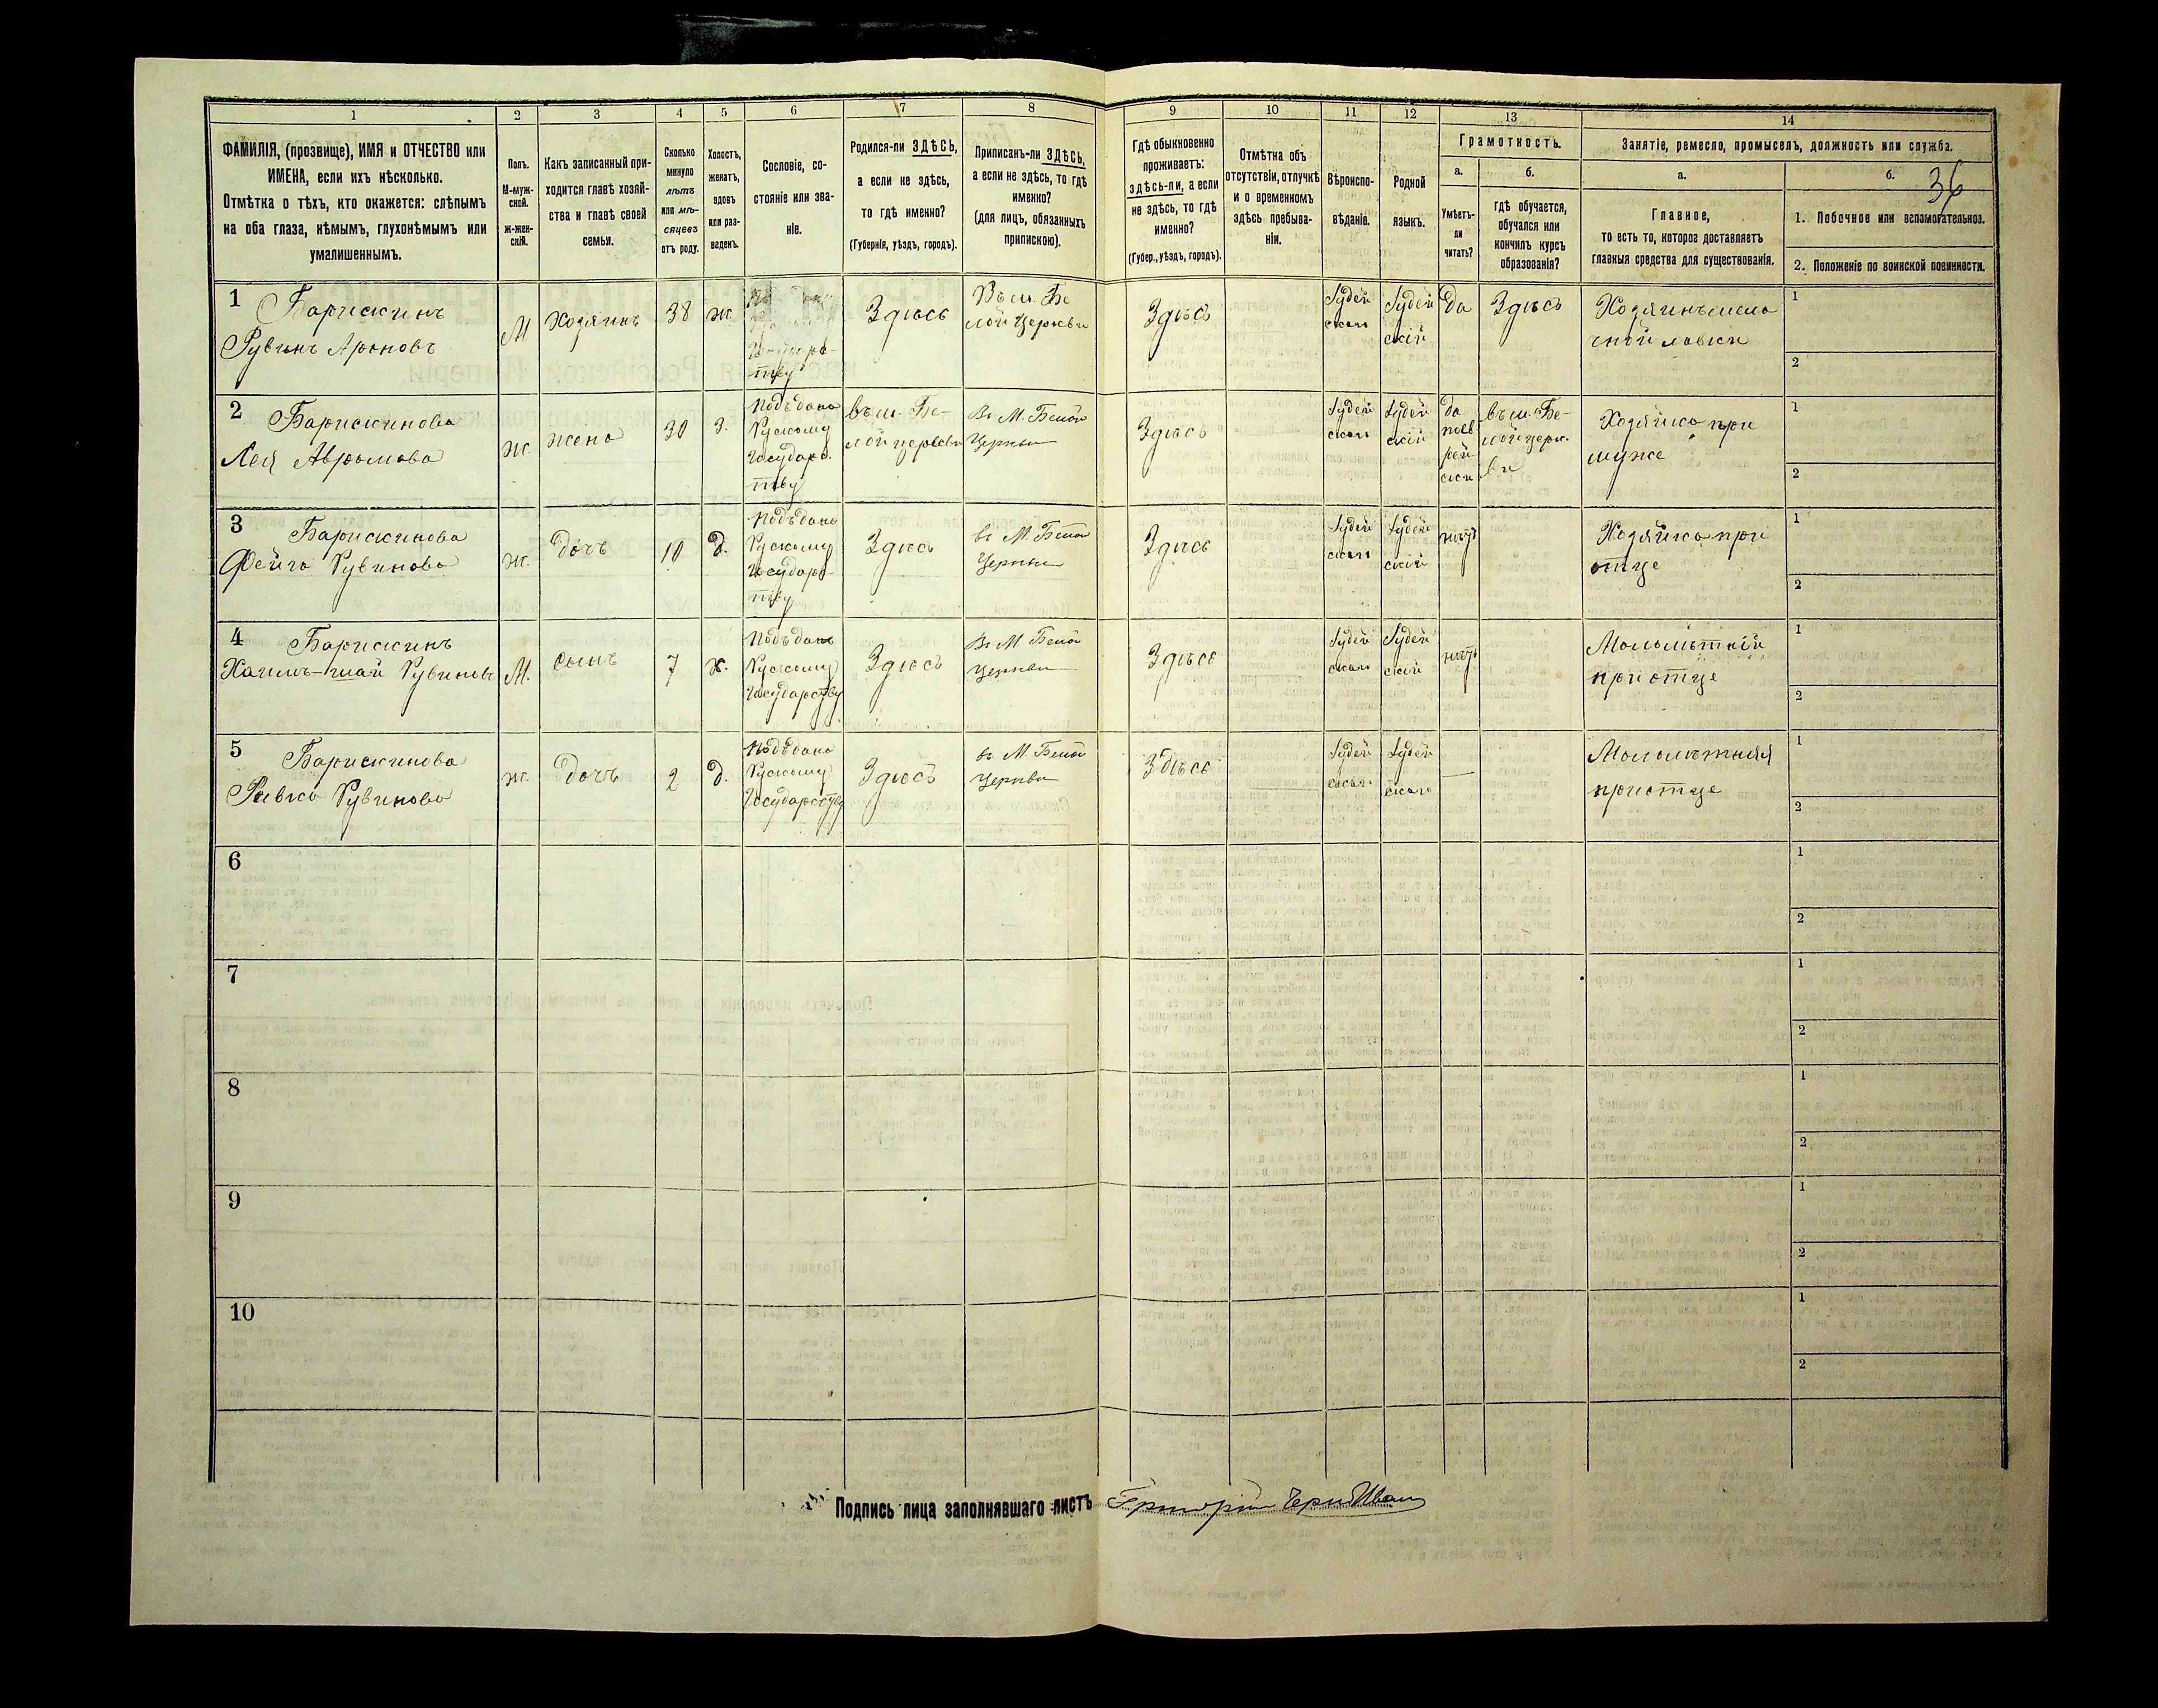 1 2 3 4 5 6 7 8 9 10 11 12 13 14
ФАМИЛІЯ, (прозвище), ИМЯ и ОТЧЕСТВО или
ИМЕНА, если ихъ нѣсколько.
Отмѣтка о тѣхъ, кто окажется: слѣпымъ
на оба глаза, нѣмымъ, глухонѣмымъ или
умалишеннымъ.
Полъ.
М-муж-
ской.
ж-жен-
скій.
Какъ записанный при-
ходится главѣ хозяй-
ства и главѣ своей
семьи.
Сколько
минуло
лѣтъ
или мѣ-
сяцевъ
отъ роду.
Холостъ,
женатъ,
вдовъ
или раз-
веденъ.
Сословіе, со-
стояніе или зва-
ніе.
Родился-ли ЗДѢСЬ,
а если не здѣсь,
то гдѣ именно?
(Губернія, уѣздъ, городъ).
Приписанъ-ли ЗДѢСЬ,
а если не здѣсь, то гдѣ
именно?
(для лицъ, обязанныхъ
припискою).
Гдѣ обыкновенно
проживаетъ:
здѣсь-ли, а если
не здѣсь, то гдѣ
именно?
(Губер., уѣздъ, городъ).
Отмѣтка объ
отсутствіи, отлучкѣ
и о временномъ
здѣсь пребыва-
ніи.
Вѣроиспо-
вѣданіе.
Родной
языкъ.
Грамотность.
а.
Умѣетъ-
ли
читать?
б.
гдѣ обучается,
обучался или
кончилъ курсъ
образованія?
Занятіе, ремесло, промыселъ, должность или служба.
а.
Главное,
то есть то, которое доставляетъ
главныя средства для существованія.
б.
36
1. Побочное или вспомогательное.
2. Положеніе по воинской повинности.
1
Барискинъ
Рувинъ Ароновъ
М
Хозяинъ
38
ж.
Здѣсь
Въ м. Бе
лой Церкви
Здѣсь
Іудей
скаго
Іудей
скій
Да
Здѣсь
Хозяинъ
лавки
1
2
2
Барискинова
Лея Аврамова
ж.
жена
30
З.
Подъдана
Рускому
Государс.
тву
въ м. Бе-
лой церкви
Въ М. Белой
Церкви
Здѣсь
Іудей
скаго
Іудей
скій
да
поев
рей
ски
въ м. Бе-
лой церк.
ви
Хозяйка при
муже
1
2
3
Барискинова
Фейга Рувинова
ж.
дочъ
10
д.
Подъдана
Рускому
Государс-
тву
Здѣсь
въ М. Белой
Церкви
Здѣсь
Іудей
скаго
Іудей
скій
нѣтъ
Хозяйка при
отце
1
2
4
Барискинъ
Рувиновъ
М.
сынъ
7
х.
Подъданъ
Рускому
Государству
Здѣсь
Въ М Белой
Церкви
Здѣсь
Іудей
скаго
Іудей
скій
нѣтъ
Малолѣтній
при отце
1
2
5
Барискинова
Ривка Рувинова
ж.
дочъ
2
д.
Подъдана
Рускому
Государству
Здѣсь
въ М Белой
Церкви
Здѣсь
Іудей
скаго
Іудей
скаго
Малолѣтняя
при отце
1
2
6
1
2
7
1
2
8
1
2
9
1
2
10
1
2
Подпись лица заполнявшаго листъ Григорій